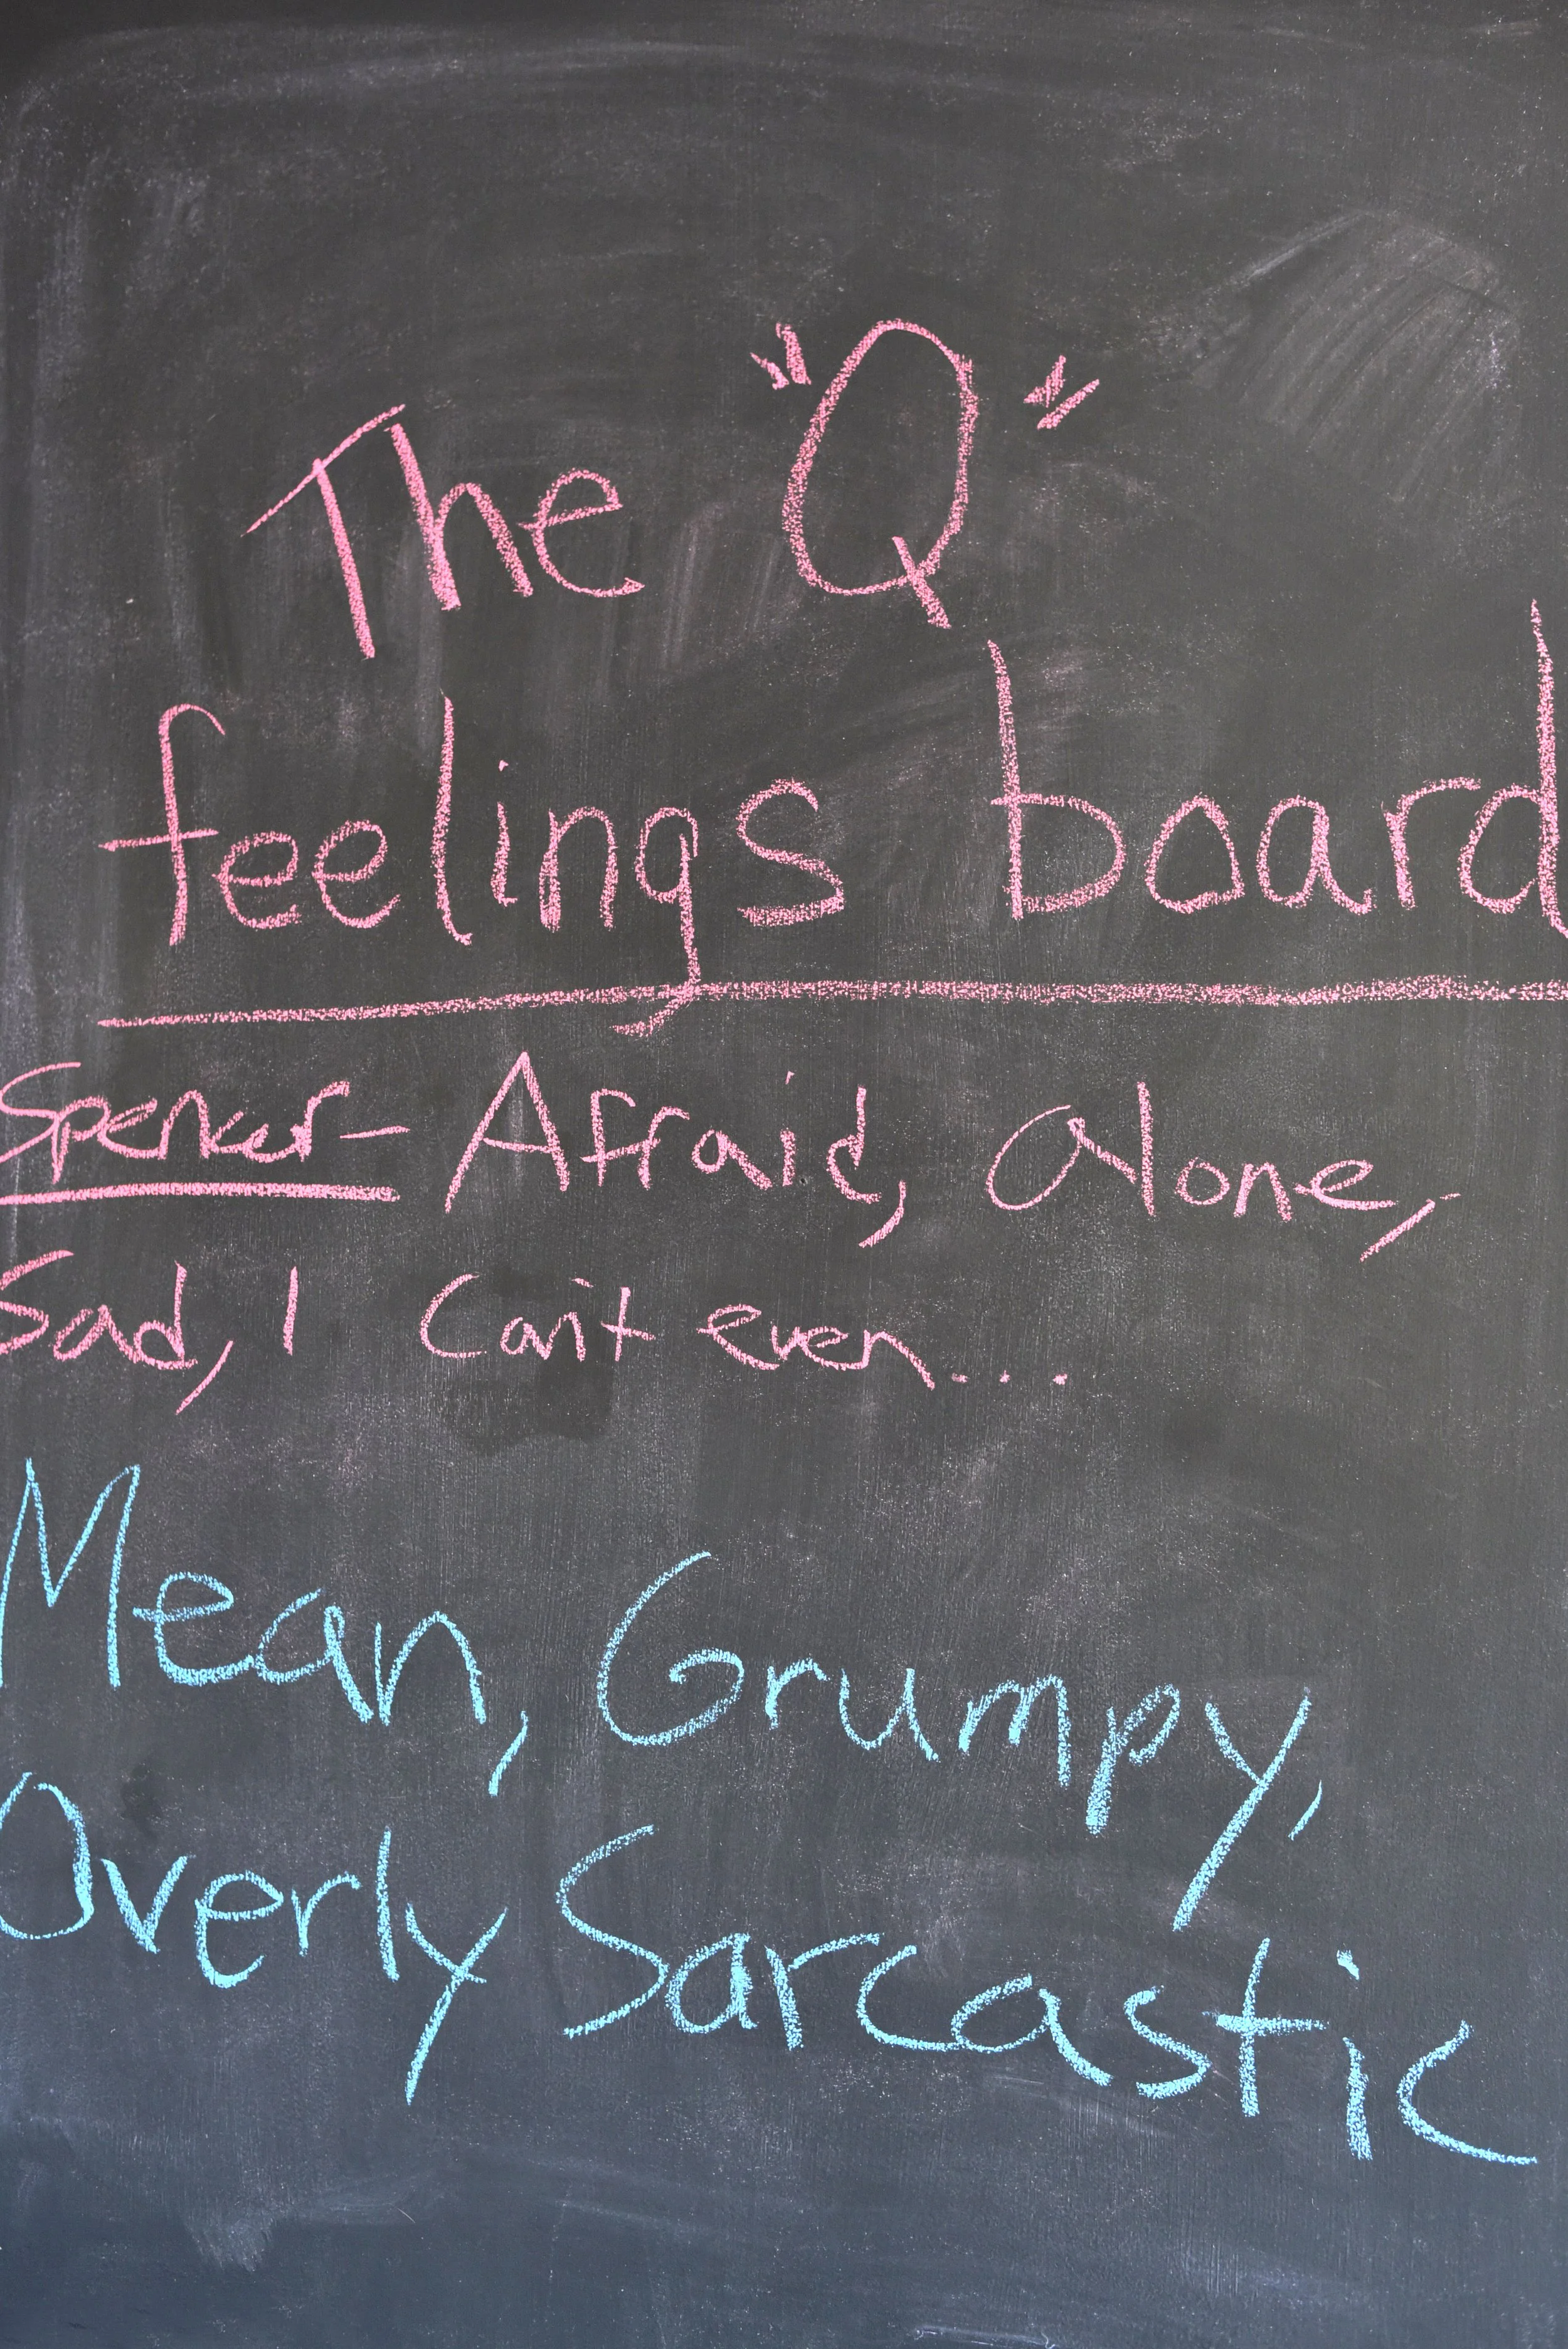 The "Q"
feelings board
Spencer- Afraid, Alone,
Sad, I Can't even....
Mean, Grumpy,
Overly Sarcastic